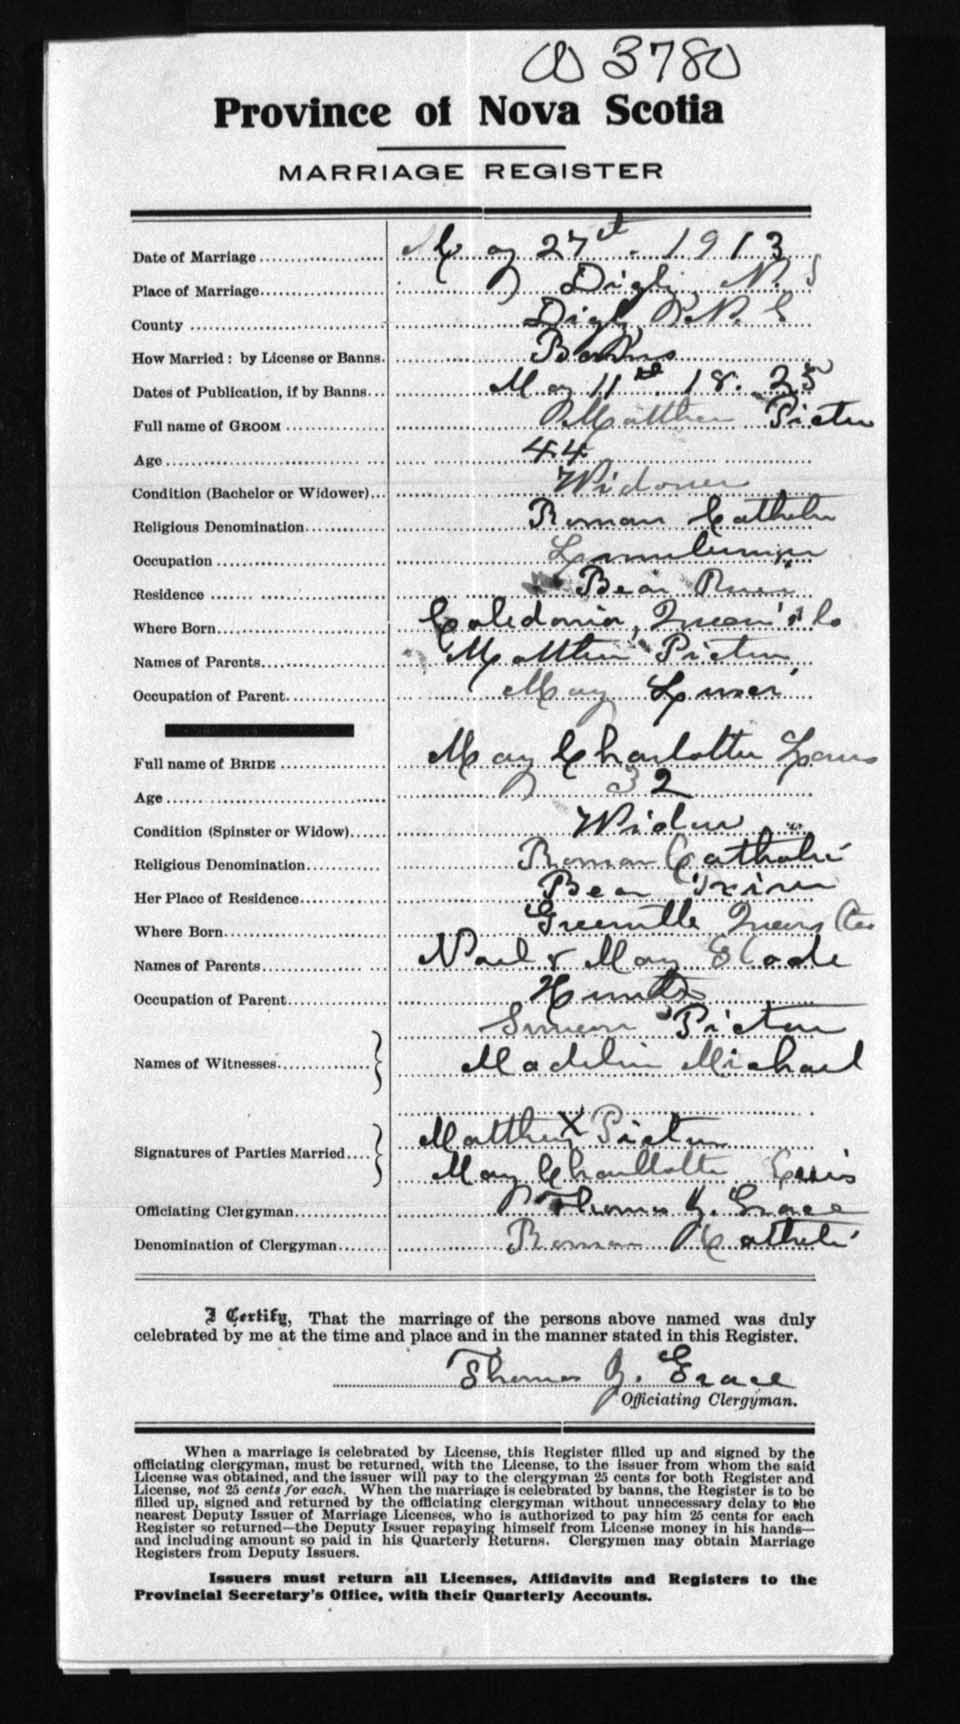 3780
Province of Nova Scotia
MARRIAGE REGISTER
Date of Marriage May 27th 1913
Place of Marriage Digby N.S
County Digby N.S
How Married: by License or Banns. Banns
Dates of Publication, if by Banns May 11th 18. 25
Full name of GROOM Matthew Pictou
Age 44
Condition (Bachelor or Widower) Widower
Religious Denomination Roman Catholic
Occupation
Residence Bear River
Where Born Caledonia, Queen's Co
Names of Parents Matthew Pictou
Occupation of Parent May
Full name of BRIDE May Charlotte
Age 32
Condition (Spinster or Widow) Widow
Religious Denomination Roman Catholic
Her Place of Residence Bear River
Where Born Queens Co
Names of Parents & May Glode
Occupation of Parent Hunter
Simeon Pictou
Names of Witnesses
Madeline Michael
Matthew X Pictou
Signatures of Parties Married
May Charllotte
Officiating Clergyman Thomas J. Grace
Denomination of Clergyman Roman Catholic
I Certify, That the marriage of the persons above named was duly
celebrated by me at the time and place and in the manner stated in this Register.
Thomas J. Grace
Officiating Clergyman.
When a marriage is celebrated by License, this Register filled up and signed by the
officiating clergyman, must be returned, with the License, to the issuer from whom the said
License was obtained, and the issuer will pay to the clergyman 25 cents for both Register and
License, not 25 cents for each. When the marriage is celebrated by banns, the Register is to be
filled up, signed and returned by the officiating clergyman without unnecessary delay to the
nearest Deputy Issuer of Marriage Licenses, who is authorized to pay him 25 cents for each
Register so returned—the Deputy Issuer repaying himself from License money in his hands—
and including amount so paid in his Quarterly Returns. Clergymen may obtain Marriage
Registers from Deputy Issuers.
Issuers must return all Licenses, Affidavits and Registers to the
Provincial Secretary's Office, with their Quarterly Accounts.